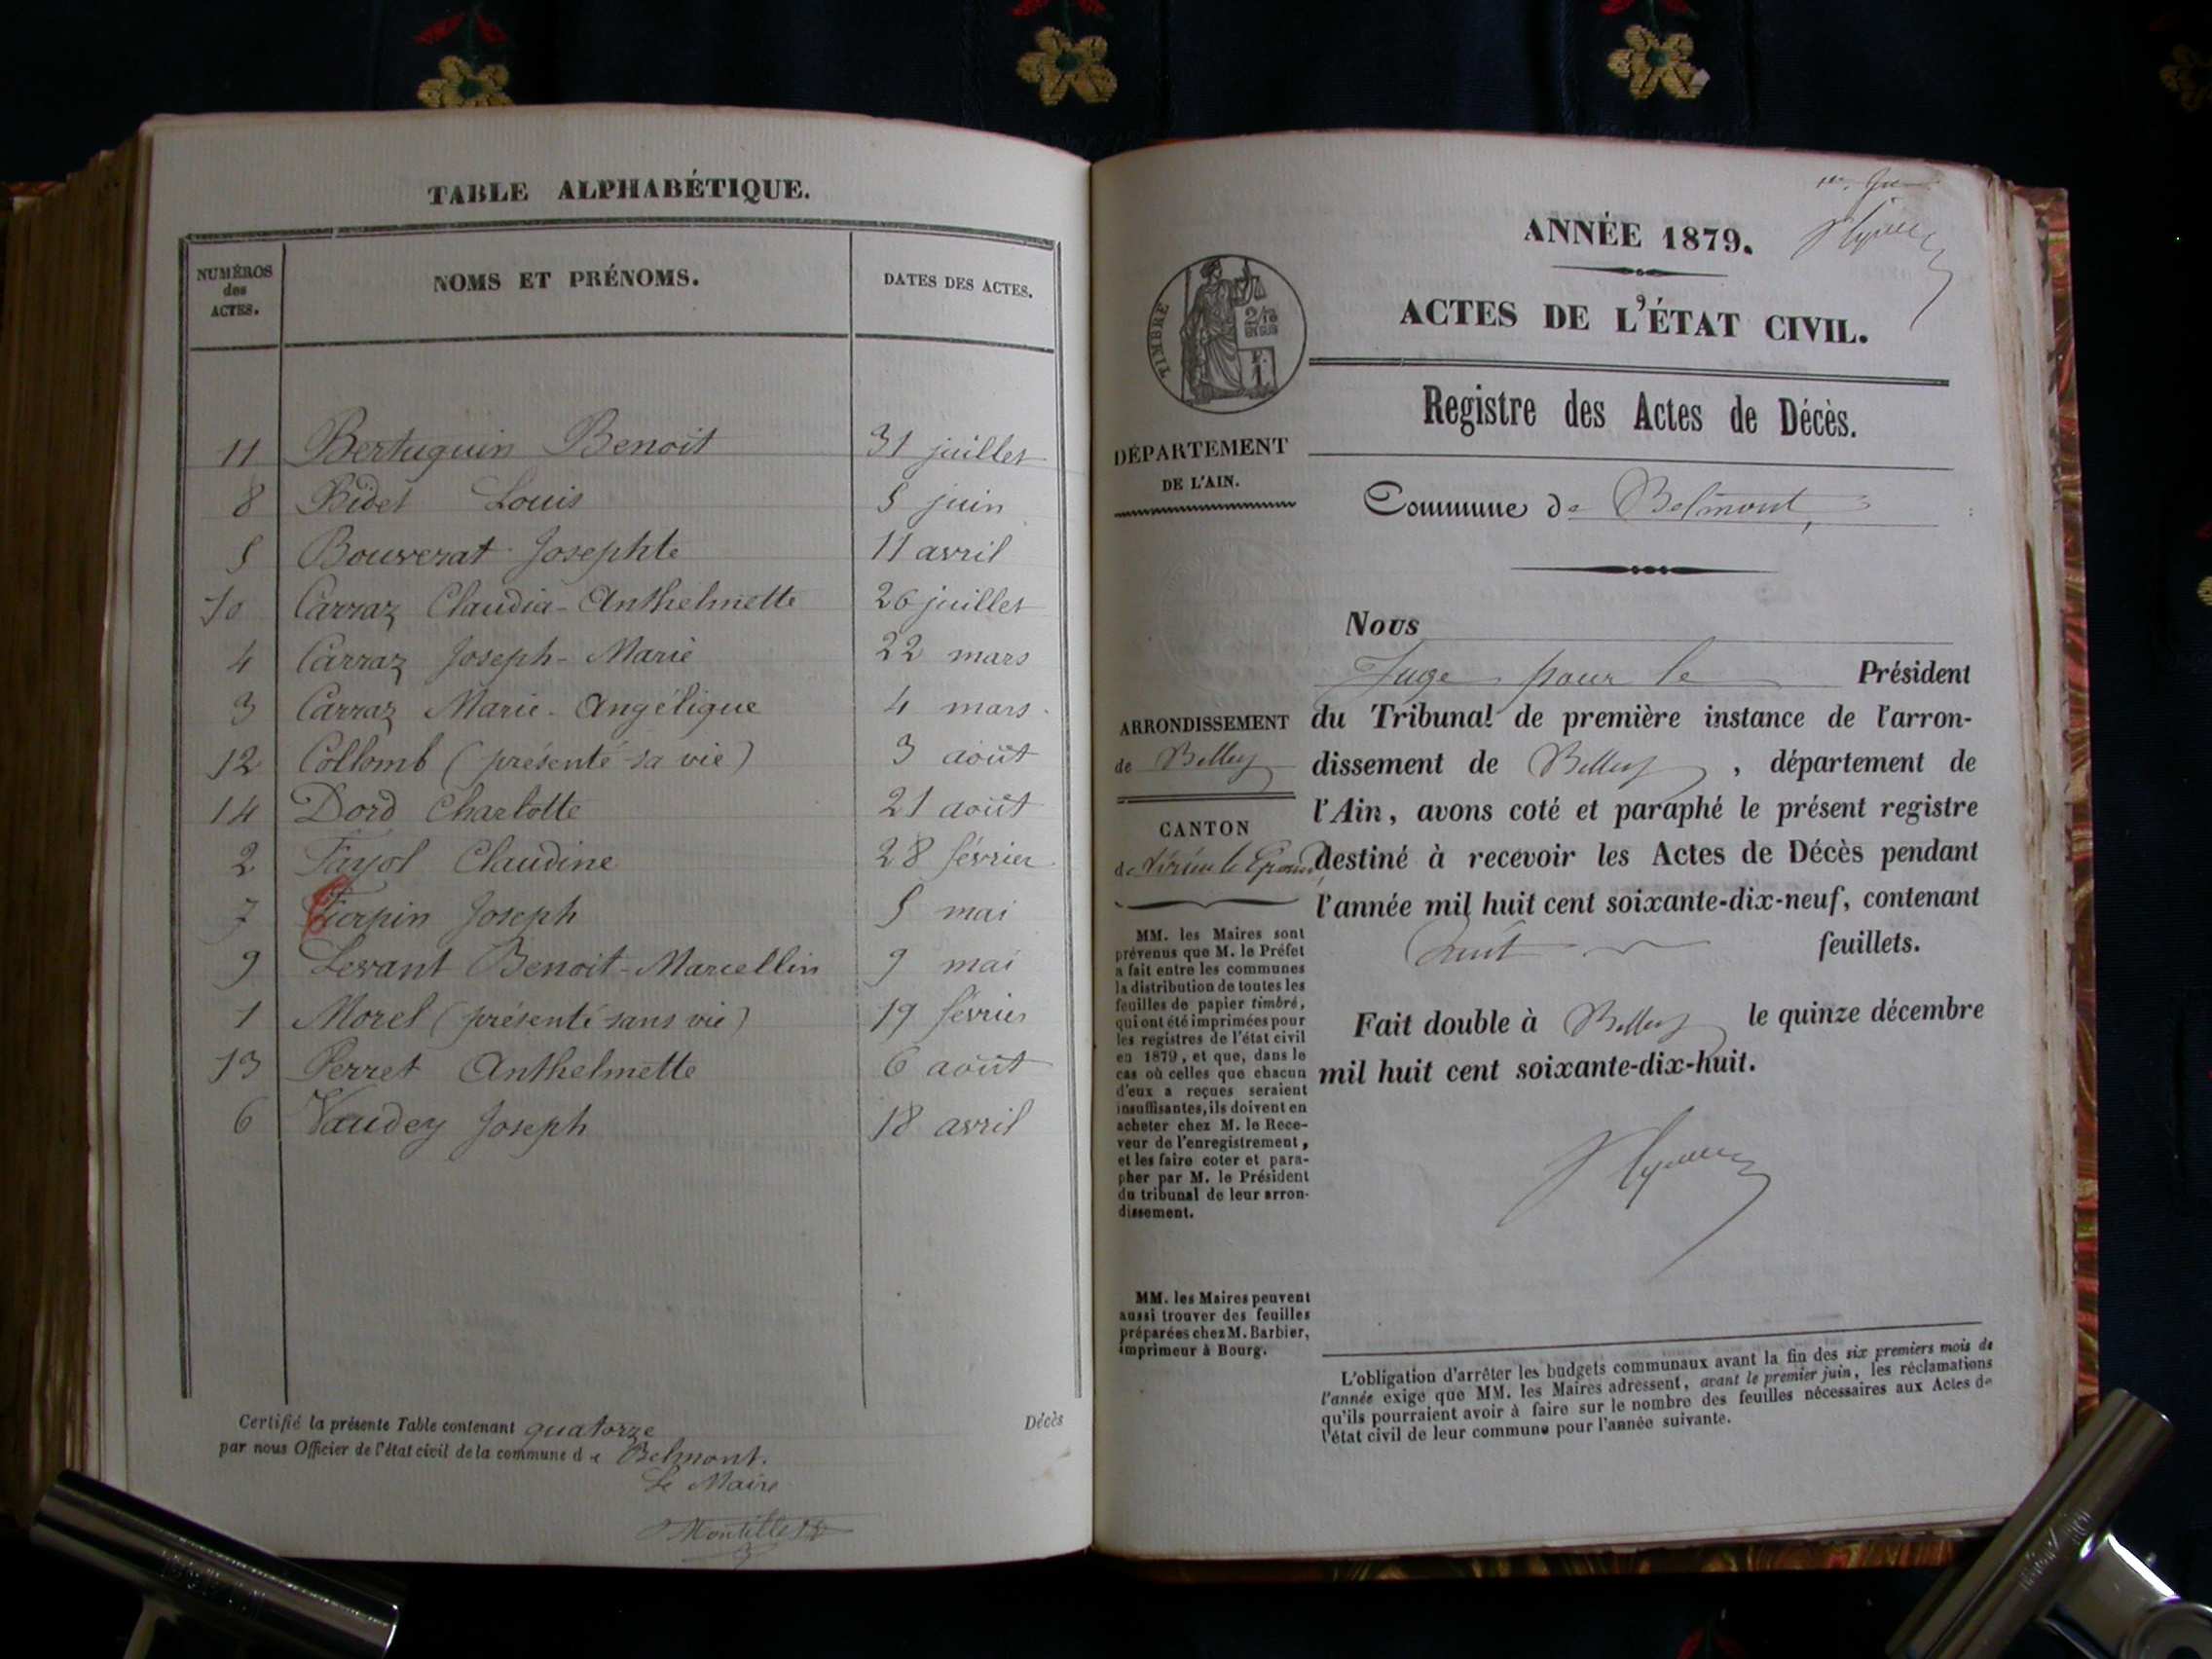 TABLE ALPHABÉTIQUE.
NUMÉROS des ACTES.
NOMS ET PRÉNOMS.
DATES DES ACTES.
11 Bertuquin Benoit 31 juillet
8 Bidet Louis 5 juin
5 Bouverat Josephte 11 avril
10 Carraz Claudia-Anthelmette 26 juillet
4 Carraz Joseph-Marie 22 mars
3 Carraz Marie-Angélique 4 mars
12 Collomb (présenté sa vie) 3 août
14 Dord Charlotte 21 août
2 Fayol Claudine 28 février
7 Joseph 5 mai
9 Levant Benoit-Marcellin 9 mai
1 Morel (présenté sans vie) 19 février
13 Perret Anthelmette 6 août
6 Vaudey Joseph 18 avril
Certifié la présente Table contenant quatorze Décès
par nous Officier de l'état civil de la commune de Belmont.
Le Maire
ANNÉE 1879.
ACTES DE L'ÉTAT CIVIL.
TIMBRE
2/10 EN SUS
Registre des Actes de Décès.
DÉPARTEMENT
DE L'AIN.
Commune de Belmont,
Nous
Juge pour le Président
du Tribunal de première instance de l'arron-
dissement de Belley, département de
l'Ain, avons coté et paraphé le présent registre
destiné à recevoir les Actes de Décès pendant
l'année mil huit cent soixante-dix-neuf, contenant
huit feuillets.
Fait double à Belley le quinze décembre
mil huit cent soixante-dix-huit.
ARRONDISSEMENT
de Belley
CANTON
de Virieu le Grand,
MM. les Maires sont
prévenus que M. le Préfet
a fait entre les communes
la distribution de toutes les
feuilles de papier timbré,
qui ont été imprimées pour
les registres de l'état civil
en 1879, et que, dans le
cas où celles que chacun
d'eux a reçues seraient
insuffisantes, ils doivent en
acheter chez M. le Rece-
veur de l'enregistrement,
et les faire coter et para-
pher par M. le Président
du tribunal de leur arron-
dissement.
MM. les Maires peuvent
aussi trouver des feuilles
préparées chez M. Barbier,
imprimeur à Bourg.
L'obligation d'arrêter les budgets communaux avant la fin des six premiers mois de
l'année exige que MM. les Maires adressent, avant le premier juin, les réclamations
qu'ils pourraient avoir à faire sur le nombre des feuilles nécessaires aux Actes de
l'état civil de leur commune pour l'année suivante.